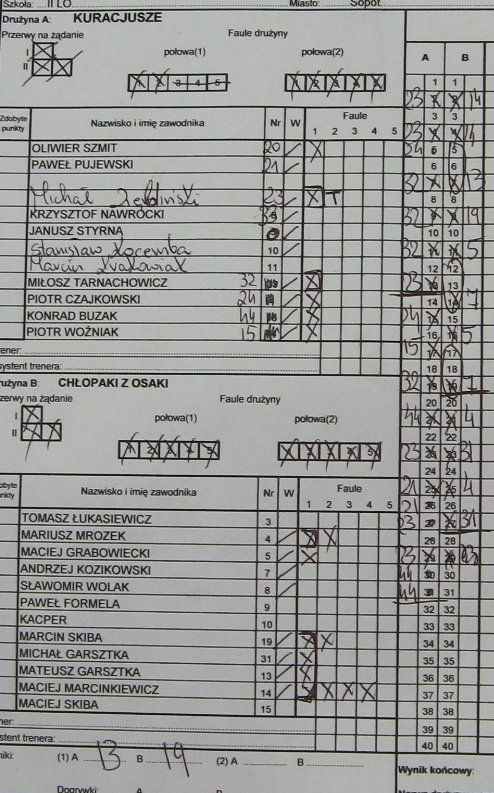 Szkoła: II LO Miasto: Sopot
Drużyna A: KURACJUSZE
Przerwy na żądanie Faule drużyny
I połowa(1) połowa(2)
II
1 2 3 4 5 1 2 3 4 5
A B
Zdobyte punkty Nazwisko i imię zawodnika Nr W Faule
1 2 3 4 5
OLIWIER SZMIT 20
PAWEŁ PUJEWSKI 21
Michał 23 T
KRZYSZTOF NAWROCKI
JANUSZ STYRNA
Stanisław 10
Marcin 11
MIŁOSZ TARNACHOWICZ 32
PIOTR CZAJKOWSKI 24
KONRAD BUZAK 44
PIOTR WOŹNIAK 15
rener:
systent trenera:
rużyna B: CHŁOPAKI Z OSAKI
zerwy na żądanie Faule drużyny
I połowa(1) połowa(2)
II
1 2 3 4 5 1 2 3 4 5
obyte nkty Nazwisko i imię zawodnika Nr W Faule
1 2 3 4 5
TOMASZ ŁUKASIEWICZ 3
MARIUSZ MROZEK 4
MACIEJ GRABOWIECKI 5
ANDRZEJ KOZIKOWSKI 7
SŁAWOMIR WOLAK 8
PAWEŁ FORMELA 9
KACPER 10
MARCIN SKIBA 19
MICHAŁ GARSZTKA 31
MATEUSZ GARSZTKA 13
MACIEJ MARCINKIEWICZ 14
MACIEJ SKIBA 15
ner:
stent trenera:
niki: (1) A 13 B 19 (2) A B
Dogrywki: A B
1 1
23 2 2 14
3 3
23 4 4 14
24 5 5
6 6
32 7 7 13
8 8
32 9 9 19
10 10
32 11 11 5
12 12
23 13 13
14 14 7
24 15 15
16 16 5
15 17 17
18 18
32 19 19 7
20 20
44 21 21 4
22 22
23 23 23 31
24 24
21 25 25 4
21 26 26
23 27 27 31
28 28
23 29 29 23
44 30 30
44 31 31
32 32
33 33
34 34
35 35
36 36
37 37
38 38
39 39
40 40
Wynik końcowy: